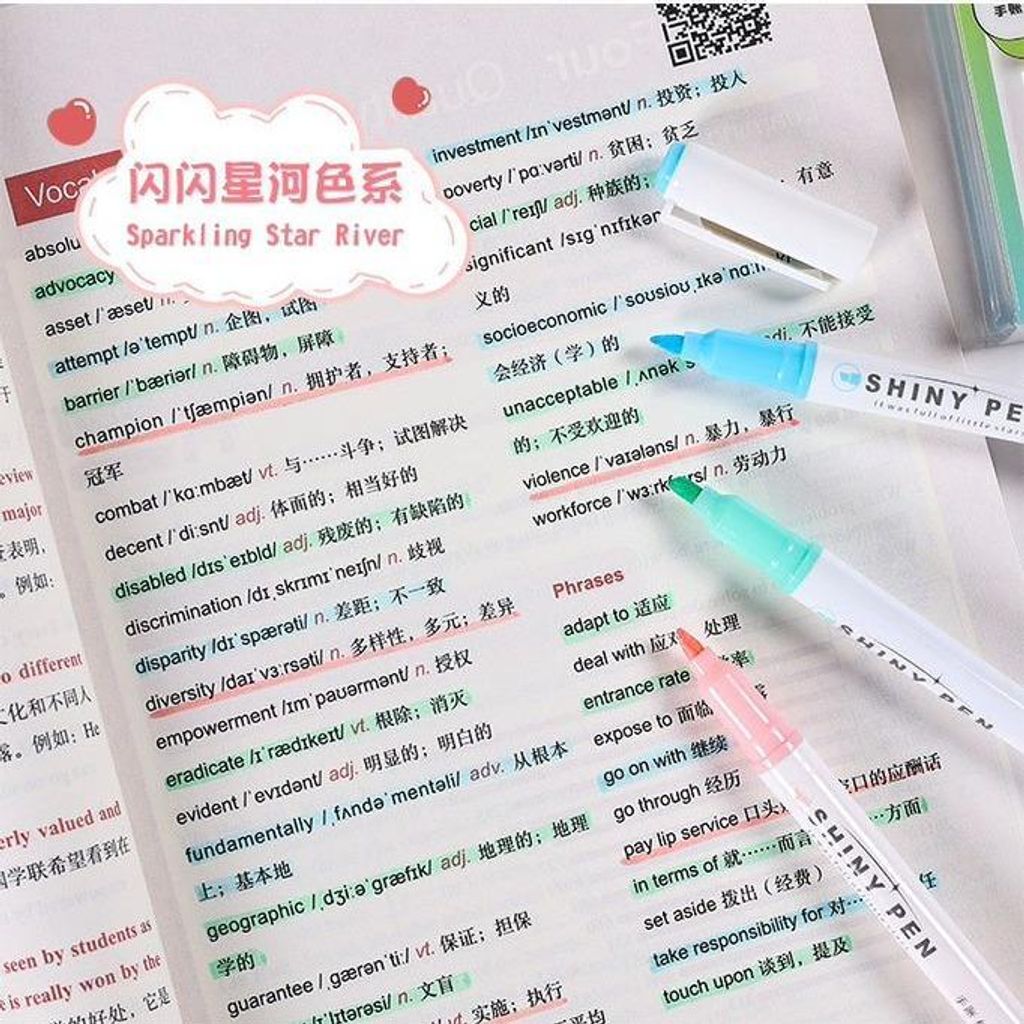 闪闪星河色系
Sparkling Star River
advocacy
asset /ˈæset/ n.
attempt /əˈtempt/ n. 企图，试图
barrier /ˈbæriər/ n. 障碍物，屏障
champion /ˈtʃæmpiən/ n. 拥护者，支持者；
冠军
combat /ˈkɑːmbæt/ vt. 与……斗争；试图解决
decent /ˈdiːsnt/ adj. 体面的；相当好的
disabled /dɪsˈeɪbld/ adj. 残废的；有缺陷的
discrimination /dɪˌskrɪmɪˈneɪʃn/ n. 歧视
disparity /dɪˈspærəti/ n. 差距；不一致
diversity /daɪˈvɜːrsəti/ n. 多样性，多元；差异
empowerment /ɪmˈpaʊərmənt/ n. 授权
eradicate /ɪˈrædɪkeɪt/ vt. 根除；消灭
evident /ˈevɪdənt/ adj. 明显的；明白的
fundamentally /ˌfʌndəˈmentəli/ adv. 从根本
上；基本地
geographic /ˌdʒiːəˈɡræfɪk/ adj. 地理的；地理
学的
guarantee /ˌɡærənˈtiː/ vt. 保证；担保
n. 文盲
vt. 实施；执行
investment /ɪnˈvestmənt/ n. 投资；投入
poverty /ˈpɑːvərti/ n. 贫困；贫乏
adj. 种族的；
significant 有意
义的
socioeconomic
会经济（学）的
unacceptable adj. 不能接受
的；不受欢迎的
violence /ˈvaɪələns/ n. 暴力，暴行
workforce n. 劳动力
Phrases
adapt to 适应
deal with 处理
entrance rate
expose to 面临
go on with 继续
go through 经历
pay lip service 口头 的应酬话
in terms of 就……而言 ……方面
set aside 拨出（经费）
take responsibility for 对… 任
touch upon 谈到，提及
SHINY PE
SHINY PEN
SHINY PEN
手账
major
表明，
例如：
different
文化和不同人
例如：He
valued and
学联希望看到在
seen by students as
is really won by the
的好处，它是